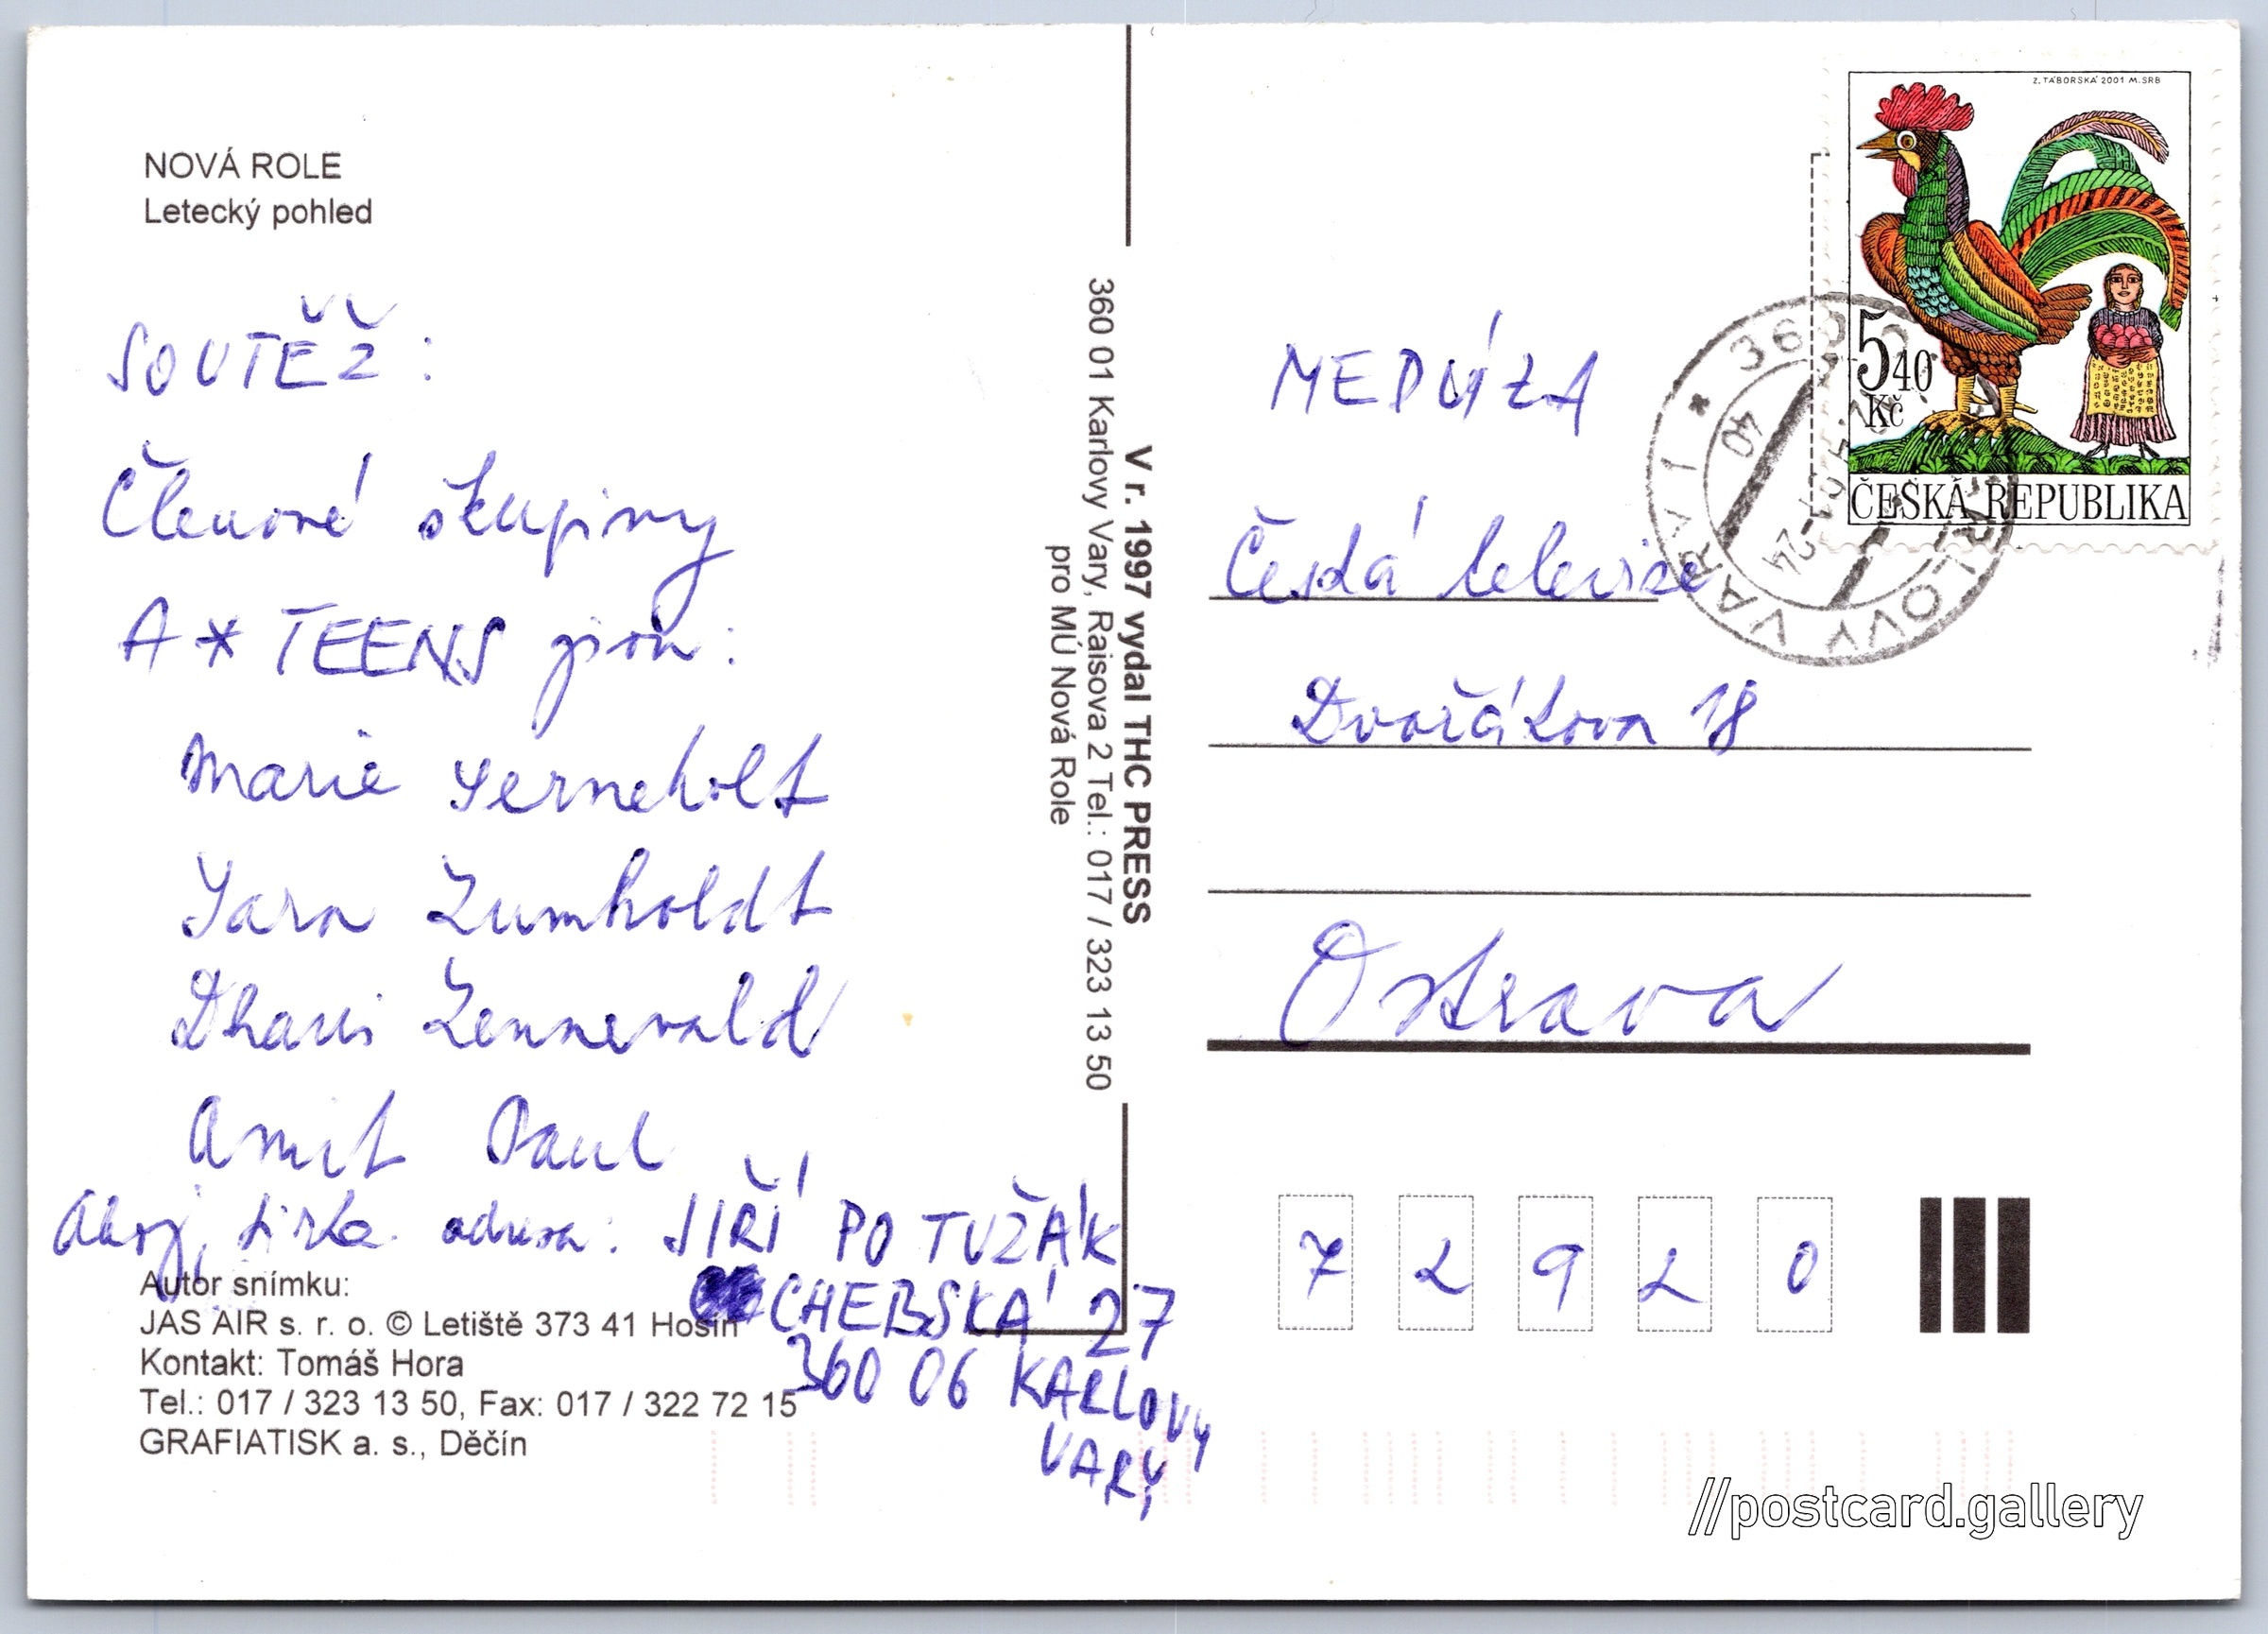 NOVÁ ROLE
Letecký pohled
SOUTĚŽ:
Členové skupiny
A* TEENS jsou:
Marie Serneholt
Sara Lumholdt
Dhani Lennevald
Amit Paul
Ahoj, Jirka. adresa: JIŘÍ POTUŽÁK
CHEBSKÁ 27
360 06 KARLOVY
VARY
Autor snímku:
JAS AIR s. r. o. © Letiště 373 41 Hosín
Kontakt: Tomáš Hora
Tel.: 017 / 323 13 50, Fax: 017 / 322 72 15
GRAFIATISK a. s., Děčín
V r. 1997 vydal THC PRESS
360 01 Karlovy Vary, Raisova 2 Tel.: 017 / 323 13 50
pro MÚ Nová Role
Z. TÁBORSKÁ 2001 M. SRB
540
Kč
ČESKÁ REPUBLIKA
KARLOVY VARY 1
MEDÚZA
Česká televize
Dvořákova 18
Ostrava
72920
//postcard.gallery